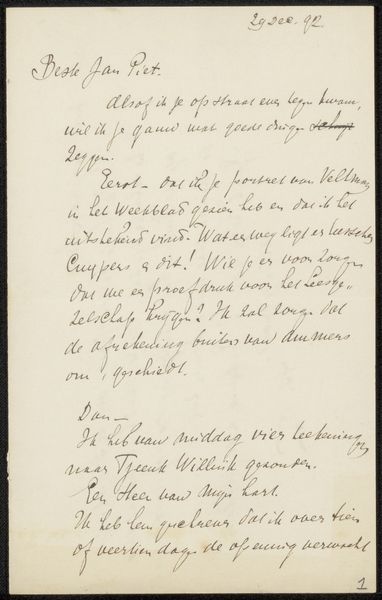 29 Dec. 92
Beste Jan Piet.
Alsof ik je op straat even tegen kwam,
wil ik je gauw wat goede dingen
zeggen.
Eerst - dat ik je portret van Veltman
in het Weekblad gezien heb en dat ik het
uitstekend vind. Wat een weg ligt er tusschen
Cuypers & dit! Wil je er voor zorgen
dat we een proefdruk voor het Leesge-
zelschap krijgen? Ik zal zorgen dat
de afrekening buiten van ommers
om, geschiedt.
Dan -
Ik heb van middag vier teekeningen
naar Tjeenk Willink gezonden.
Een Heer van mijn hart.
Ik heb hem geschreven dat ik over tien
of veertien dagen de opening verwacht
1